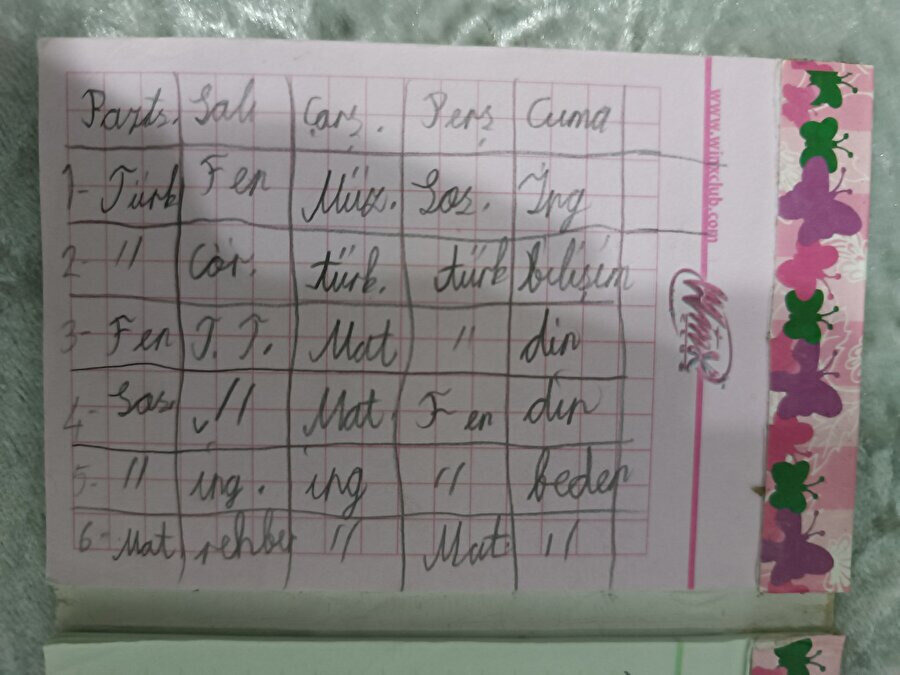 Pazts. Salı Çarş. Perş Cuma
1- Türk Fen Müz. Sos. İng
2- " Gör. türk. türk bilişim
3- Fen T.T. Mat " din
4- Sos " Mat Fen din
5- " ing. ing " beden
6- Mat rehber " Mat "
www.winxclub.com
Winx